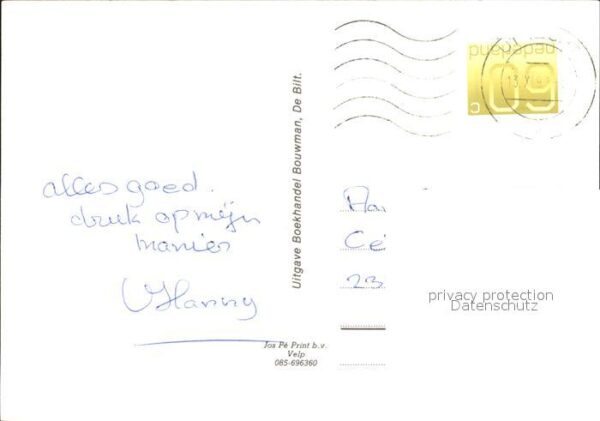 alles goed.
druk op mijn
manier
Hanny
Uitgave Boekhandel Bouwman, De Bilt.
Jos Pé Print b.v.
Velp
085-696360
nederland
60
c
Cé
23
privacy protection
Datenschutz